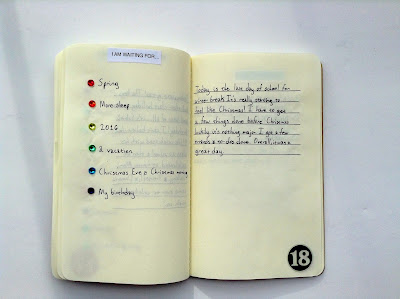 I AM WAITING FOR...
Spring
More sleep
2016
A vacation
Christmas Eve & Christmas morning
My birthday
Today is the last day of school for
winter break. It's really starting to
feel like Christmas! I have to get
a few things done before Christmas
luckily it's nothing major. I got a few
errands done. Overall it was a
great day.
18